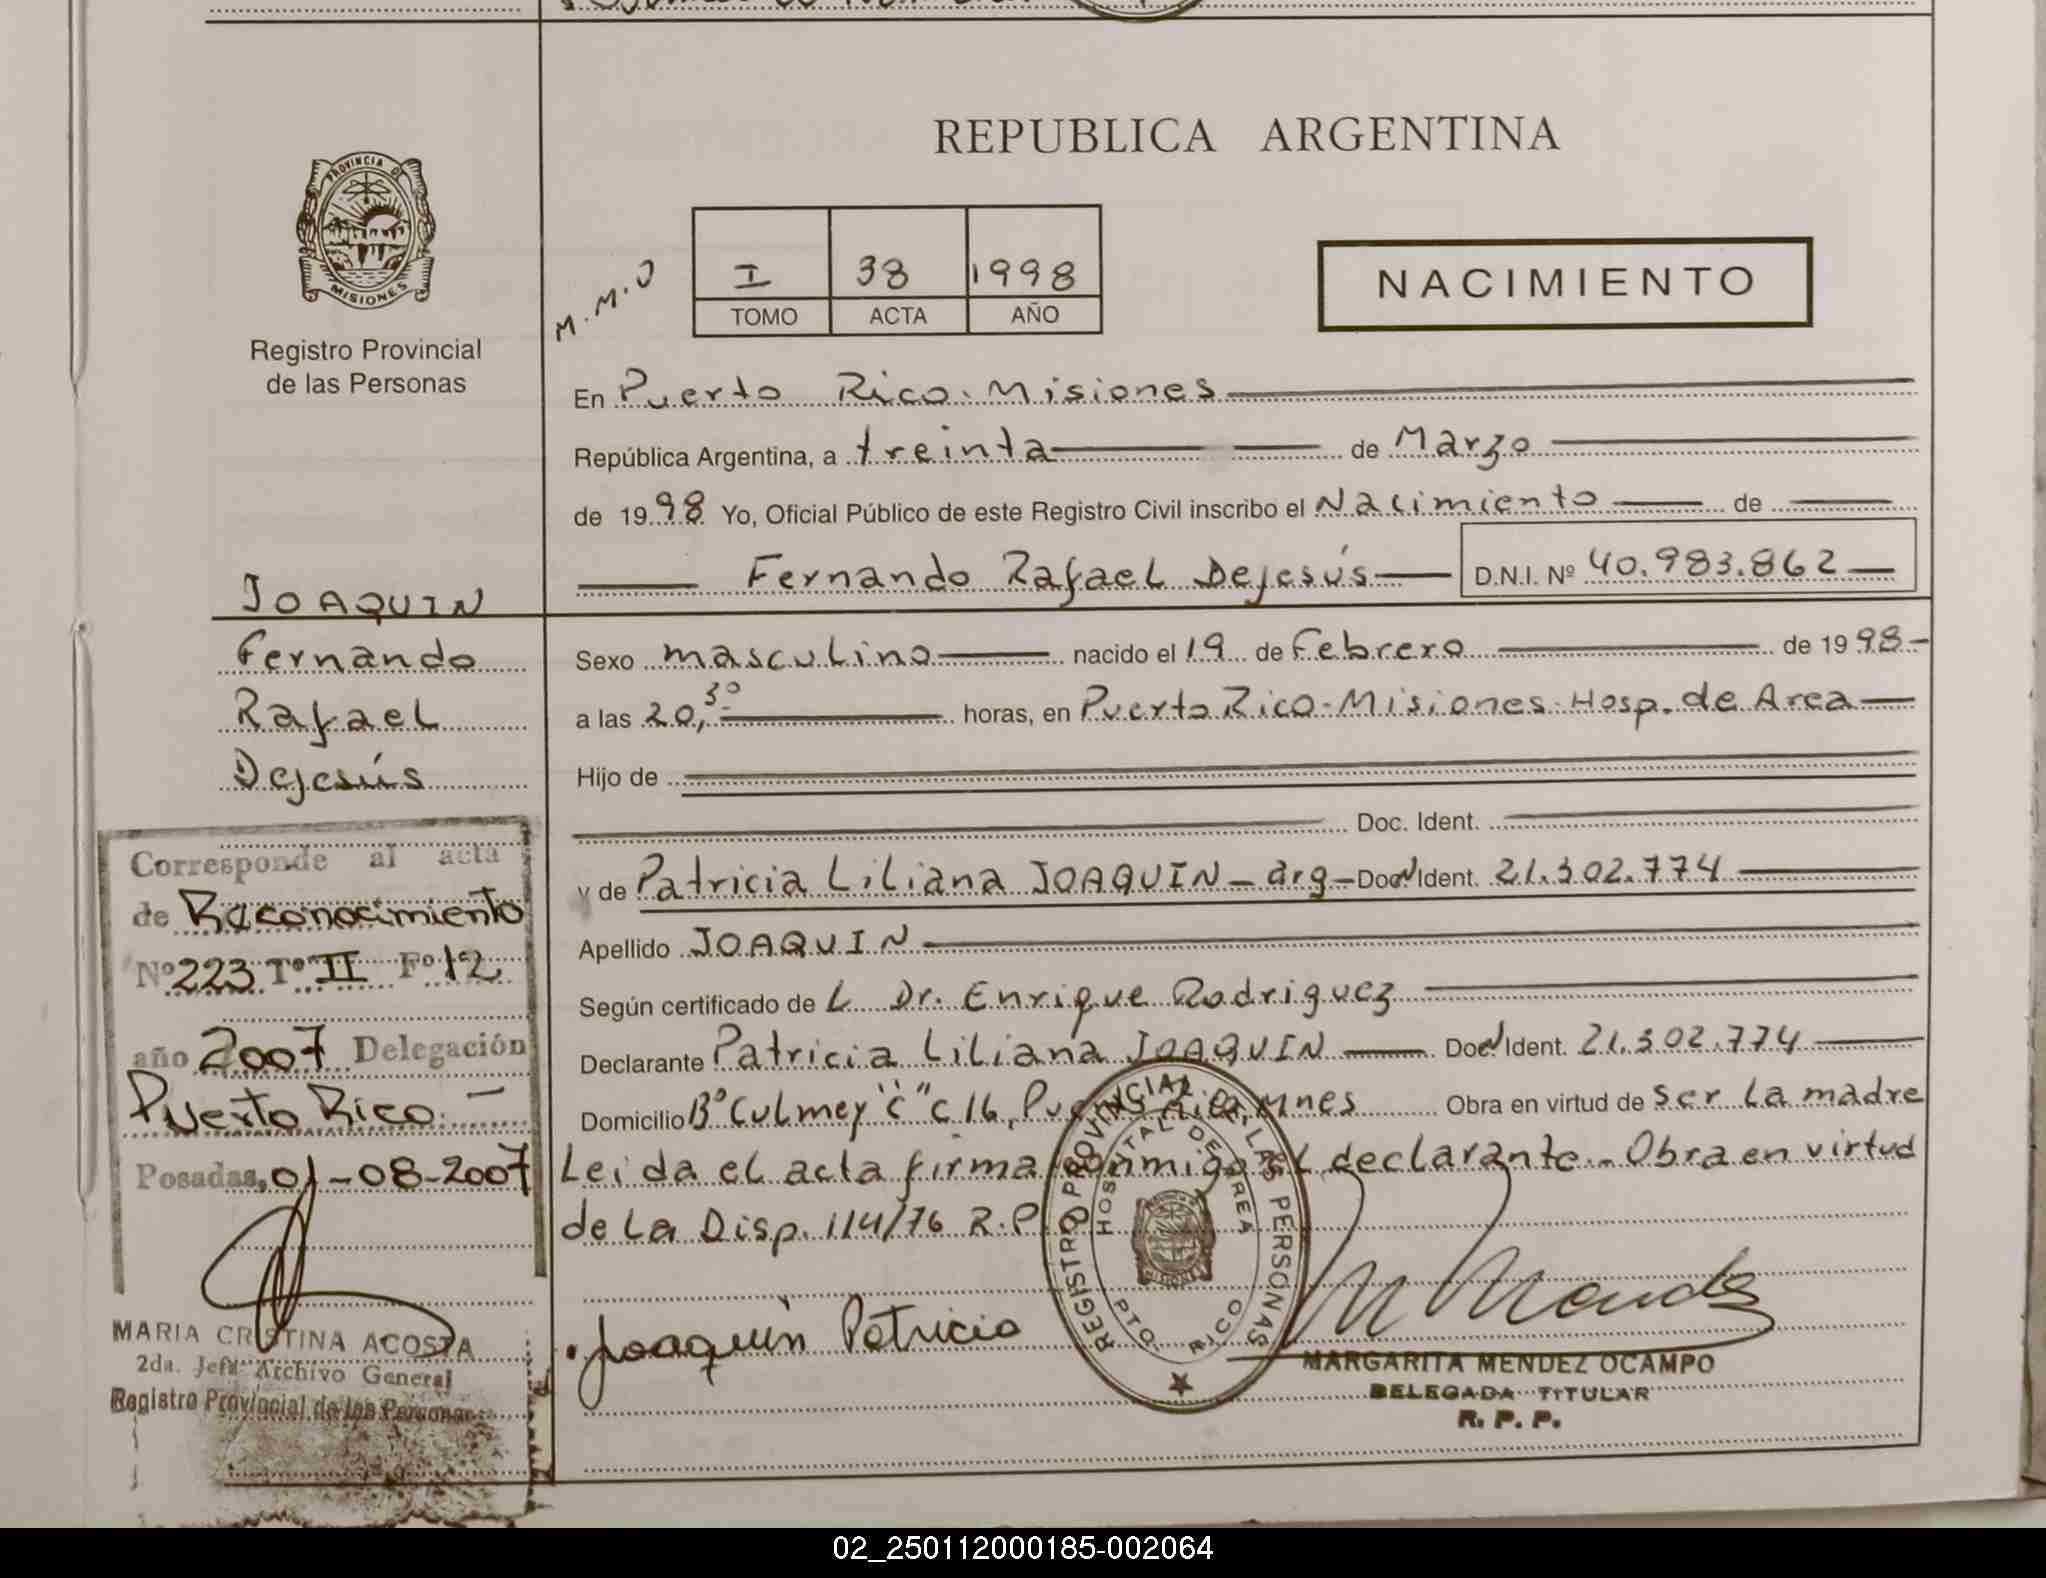 REPUBLICA ARGENTINA
PROVINCIA DE
MISIONES
Registro Provincial
de las Personas
M.M.O
I 38 1998
TOMO ACTA AÑO
NACIMIENTO
En Puerto Rico. Misiones
República Argentina, a treinta de Marzo
de 1998 Yo, Oficial Público de este Registro Civil inscribo el Nacimiento de
Fernando Rafael Dejesús D.N.I. Nº 40.983.862
JOAQUIN
Fernando
Rafael
Dejesús
Sexo masculino nacido el 19 de Febrero de 1998
a las 20,30 horas, en Puerto Rico-Misiones-Hosp. de Area
Hijo de
Doc. Ident.
y de Patricia Liliana JOAQUIN - arg - Doc. Ident. 21.302.774
Apellido JOAQUIN
Según certificado de L Dr. Enrique Rodriguez
Declarante Patricia Liliana JOAQUIN Doc. Ident. 21.302.774
Domicilio Bº Culmey "C" C 16, Puerto Rico, Mnes Obra en virtud de ser la madre
Leida el acta firma conmigo el declarante. Obra en virtud
de la Disp. 114/76 R.P.
Joaquin Patricia
REGISTRO PROVINCIAL DE LAS PERSONAS
HOSPITAL DE AREA
PTO. RICO
MARGARITA MENDEZ OCAMPO
DELEGADA TITULAR
R. P. P.
Corresponde al acta
de Reconocimiento
Nº 223 Tº II Fº 12
año 2007 Delegación
Puerto Rico.-
Posadas, 01-08-2007
MARIA CRISTINA ACOSTA
2da. Jefa Archivo General
Registro Provincial de las Personas
02_250112000185-002064